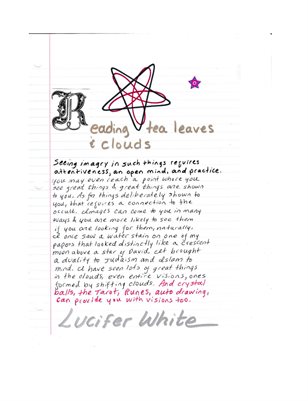 Reading tea leaves
& clouds
Seeing imagry in such things requires
attentiveness, an open mind, and practice.
You may even reach a point where you
see great things & great things are shown
to you. As for things deliberately shown to
you, that requires a connection to the
occult. Images can come to you in many
ways & you are more likely to see them
if you are looking for them, naturally.
I once saw a water stain on one of my
papers that looked distinctly like a crescent
moon above a star of david. It brought
a duality to Judaism and Islam to
mind. I have seen lots of great things
in the clouds, even entire visions, ones
formed by shifting clouds. And crystal
balls, the Tarot, Runes, auto drawing,
can provide you with visions too.
Lucifer White